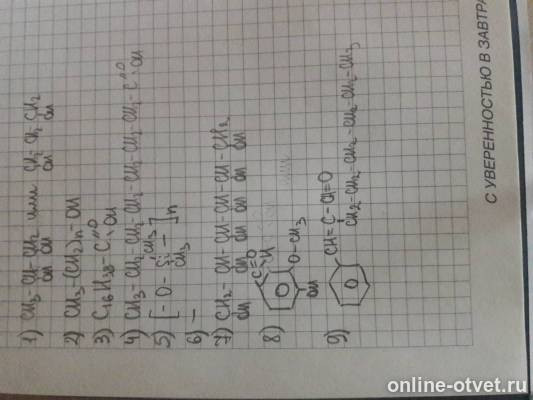 1) CH3-CH-CH2 или CH2-CH2-CH2
OH OH OH OH
2) CH3-(CH2)n-OH
3) C16H38-C=O
OH
4) CH3-CH2-CH2-CH2-CH2-CH2-CH2-C=O
OH
5) [-O-Si-]n
CH3
CH3
6) —
7) CH2-CH-CH-CH-CH-CH2
OH OH OH OH OH OH
8) C=O
H
O-CH3
OH
9) CH=C-CH=O
CH2=CH2-CH2-CH2-CH2-CH3
С УВЕРЕННОСТЬЮ В ЗАВТРА
online-otvet.ru